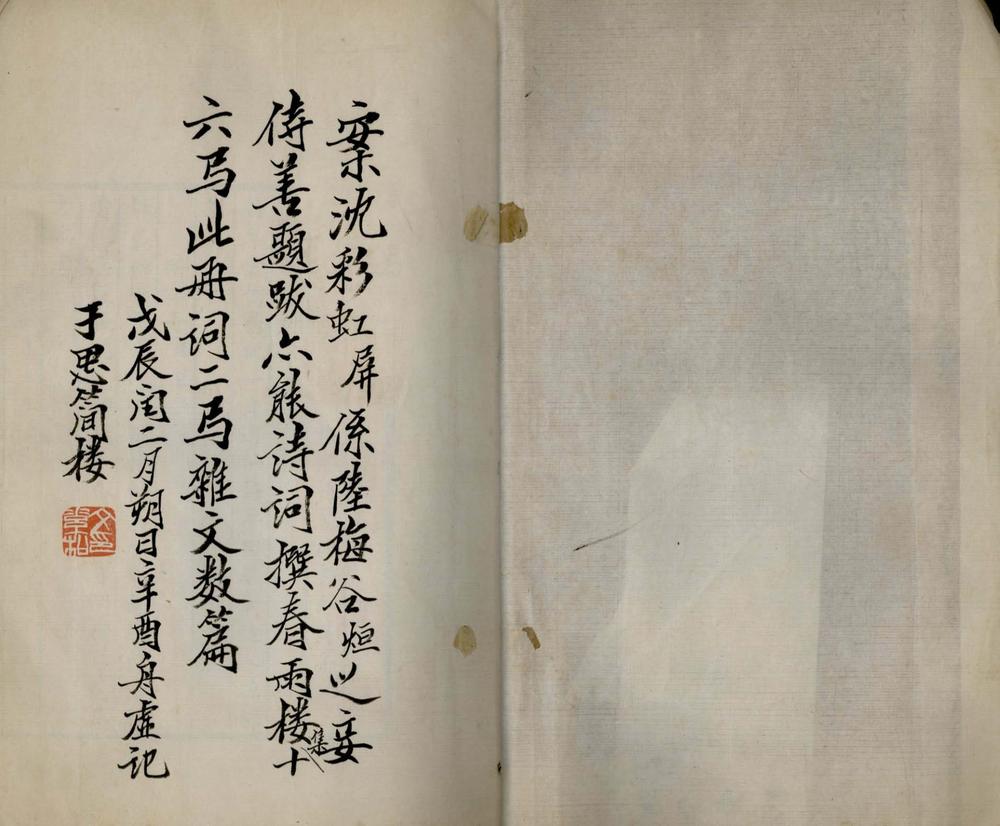 案沈彩虹屏係陸梅谷烜之妾
侍善題跋亦能詩詞撰春雨楼集十
六卷此册词二卷雜文数篇
戊辰闰二月朔日辛酉舟虚记
于思簡楼